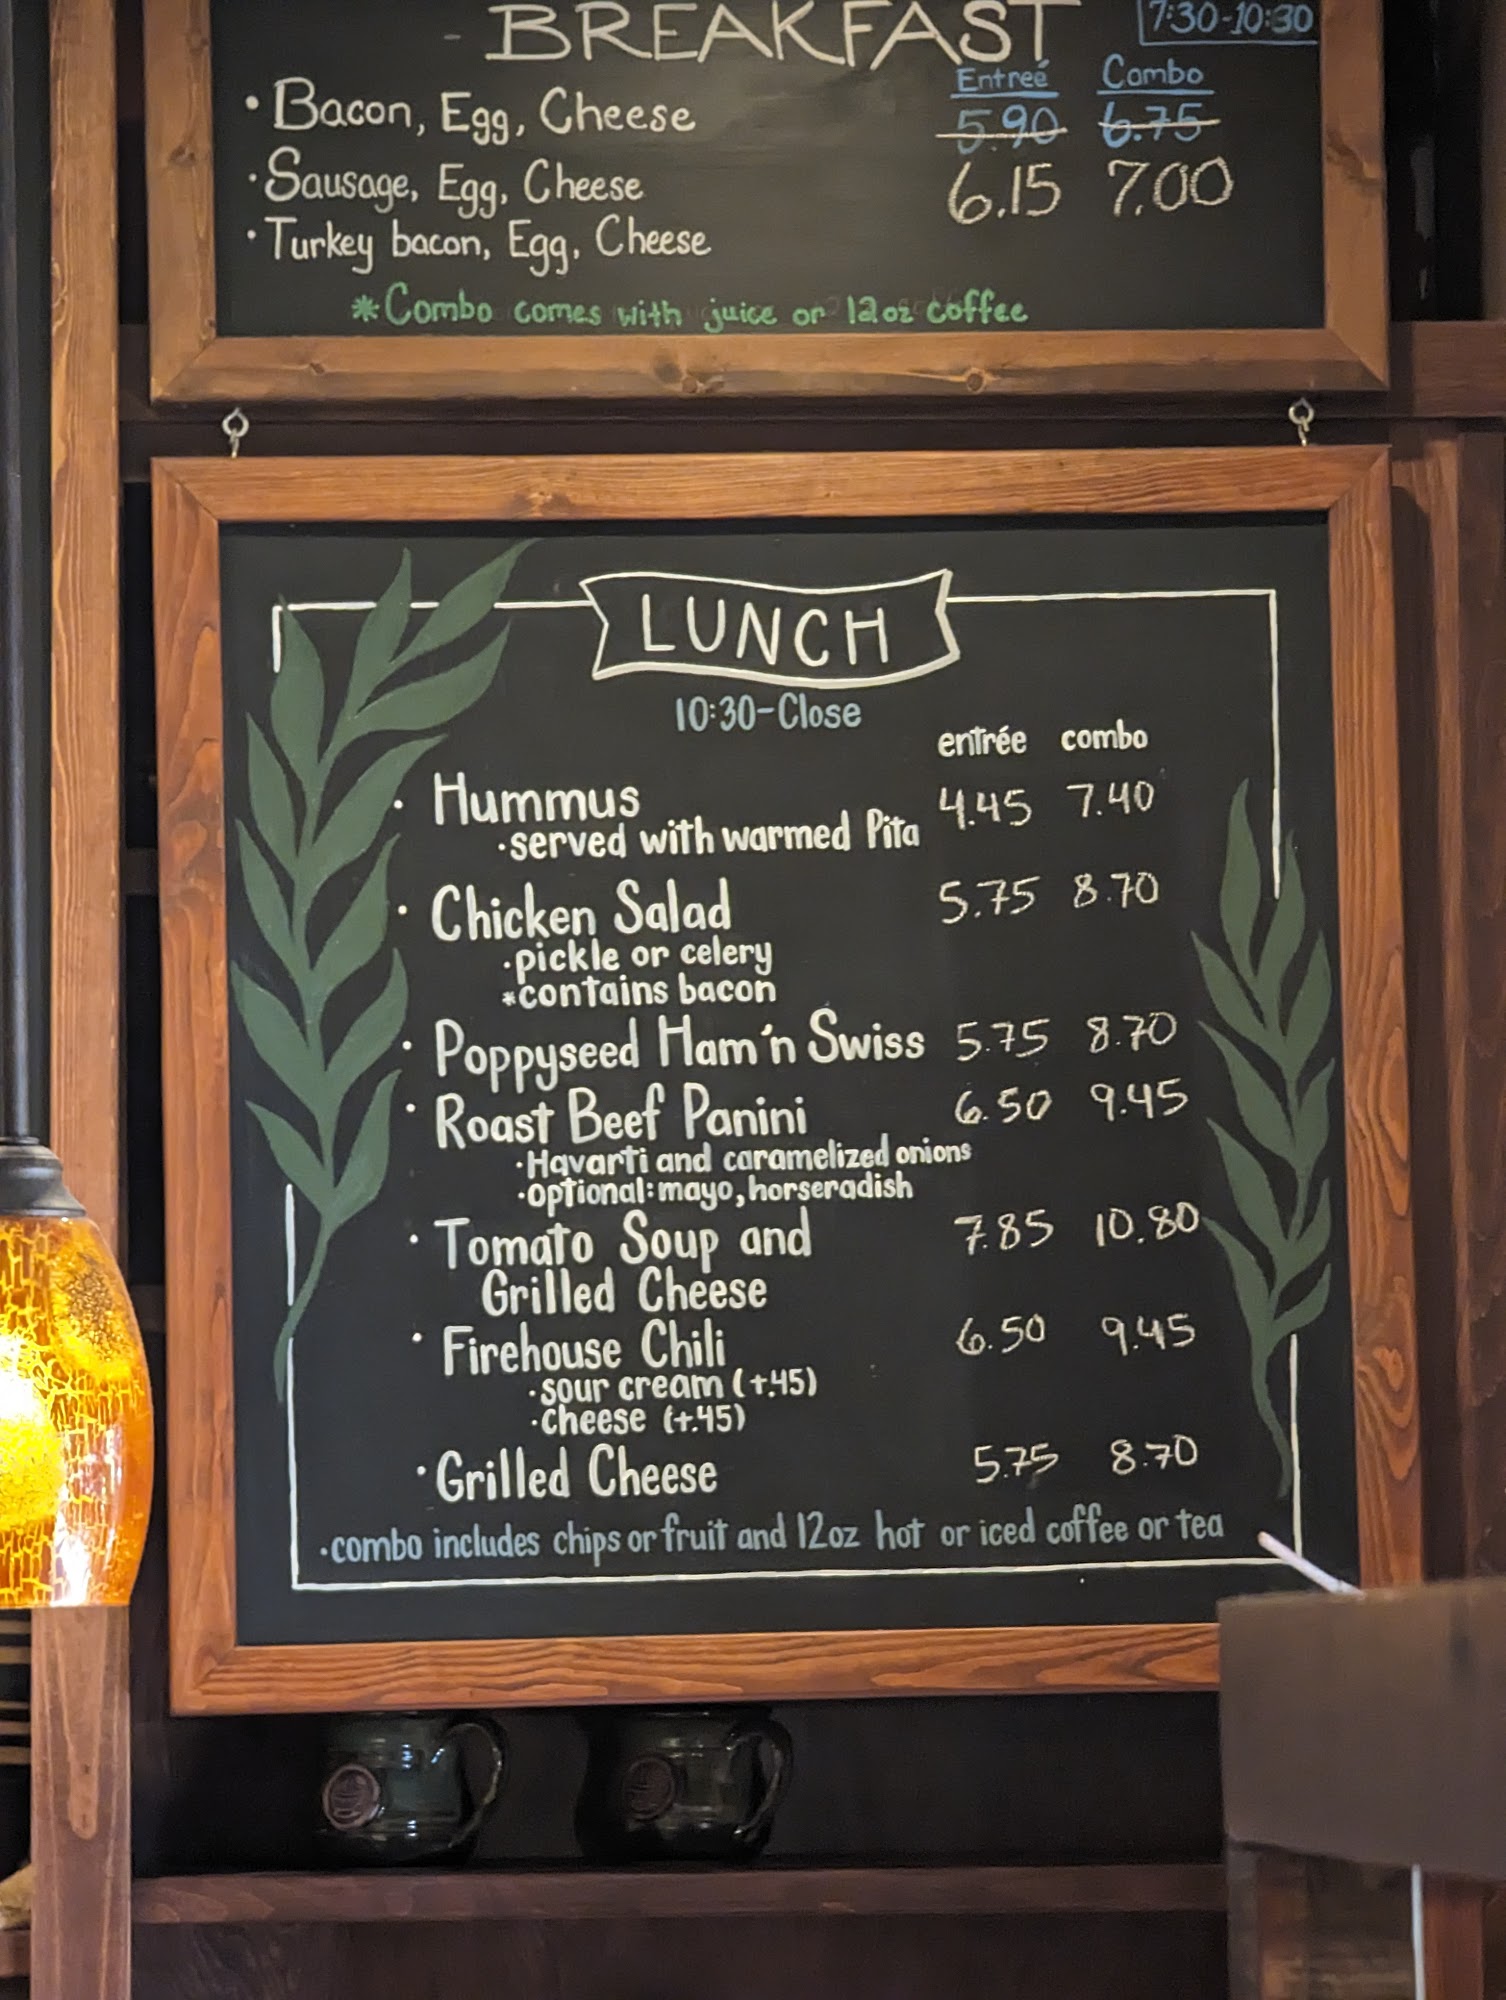 - BREAKFAST 7:30-10:30
Entreé Combo
• Bacon, Egg, Cheese 5.90 6.75
• Sausage, Egg, Cheese 6.15 7.00
• Turkey bacon, Egg, Cheese
*Combo comes with juice or 12oz coffee
LUNCH
10:30-Close
entrée combo
• Hummus 4.45 7.40
• served with warmed Pita
• Chicken Salad 5.75 8.70
• pickle or celery
*contains bacon
• Poppyseed Ham'n Swiss 5.75 8.70
• Roast Beef Panini 6.50 9.45
• Havarti and caramelized onions
• optional: mayo, horseradish
• Tomato Soup and 7.85 10.80
Grilled Cheese
• Firehouse Chili 6.50 9.45
• sour cream (+.45)
• cheese (+.45)
• Grilled Cheese 5.75 8.70
• combo includes chips or fruit and 12oz hot or iced coffee or tea